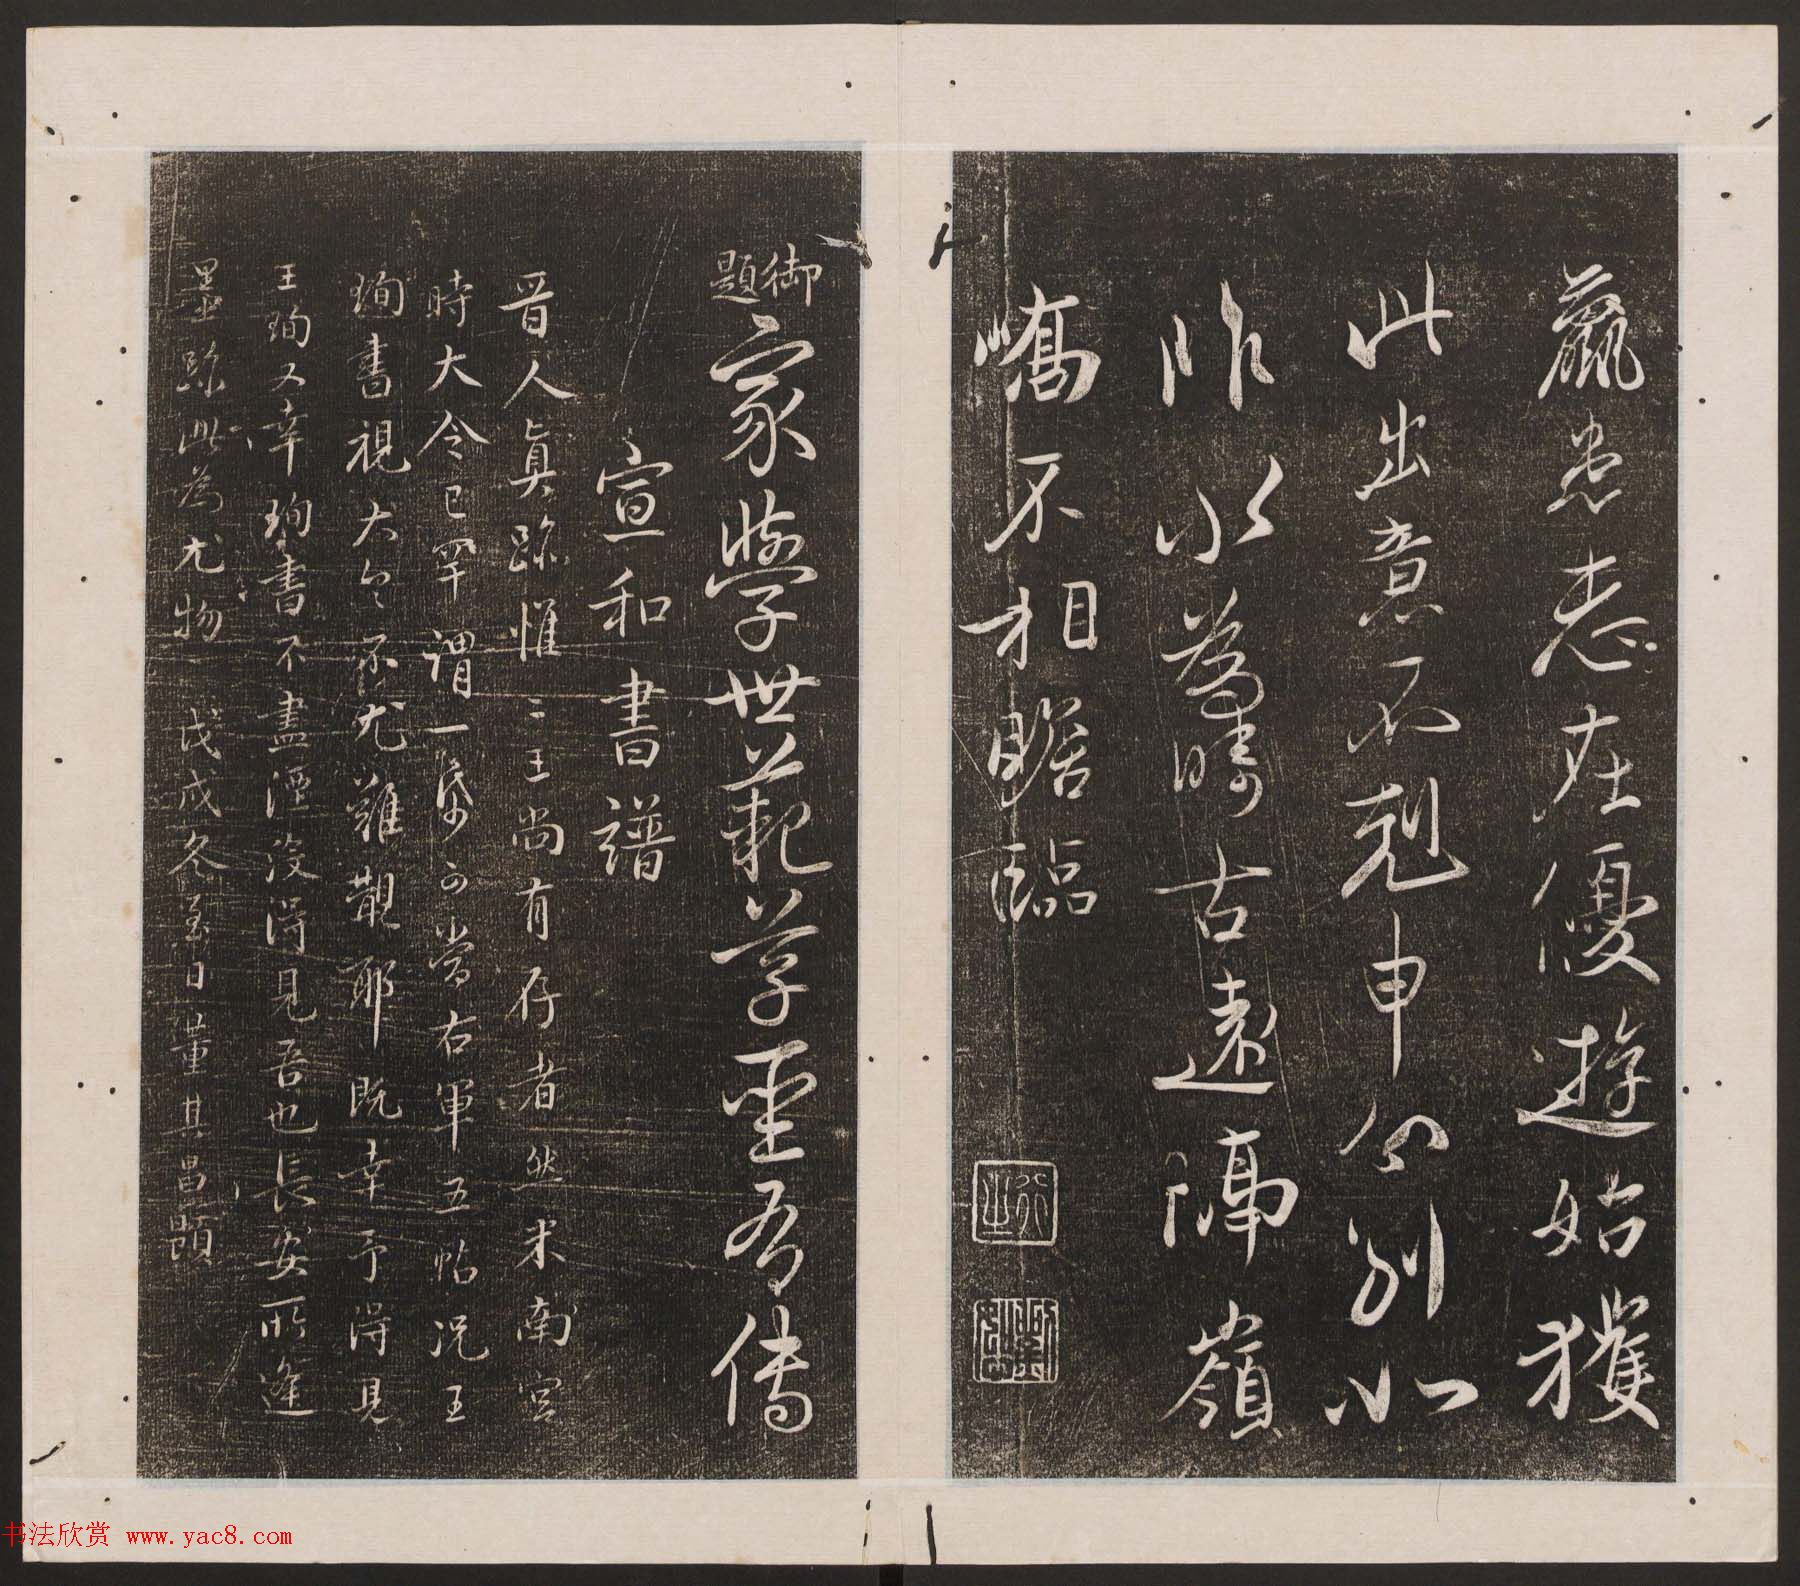 羸患悉在優遊始獲
此出意不剋申分別如
昨永爲疇古遠隔嶺
嶠不相瞻臨
御題
家學世範草聖有傳
宣和書譜
晉人真跡惟二王尚有存者然米南宮
時大令已罕謂一帋可當右軍五帖況王
珣書視大令不尤難覯耶既幸予得見
王珣又幸珣書不盡湮沒得見吾也長安所逢
墨跡此爲尤物 戊戌冬至日董其昌題
书法欣赏 www.yac8.com